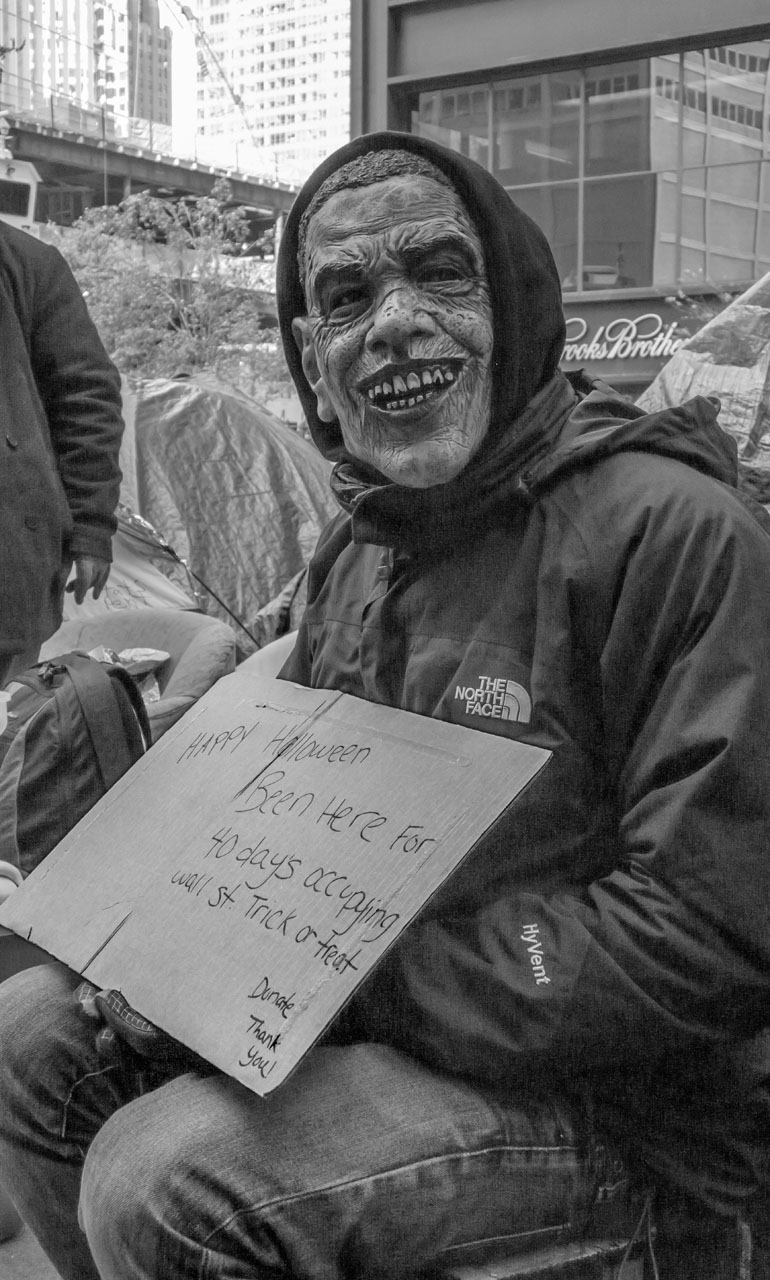 rooksBrothe
THE
NORTH
FACE
HAPPY Halloween
Been Here For
40 day's occupying
wall st. Trick or treat
Donate
Thank
You!
HyVent